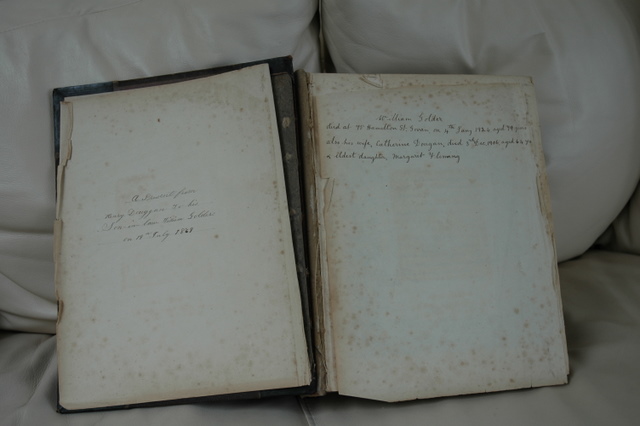 A Present from
Mary Duggan to his
Son in law William Golder
on 19th July 1868
William Golder
died at 75 Hamilton St. Govan, on 4th Jany 1922 aged
also his wife, Catherine Dougan, died 5th Dec. aged
& Eldest daughter Margaret Fleming